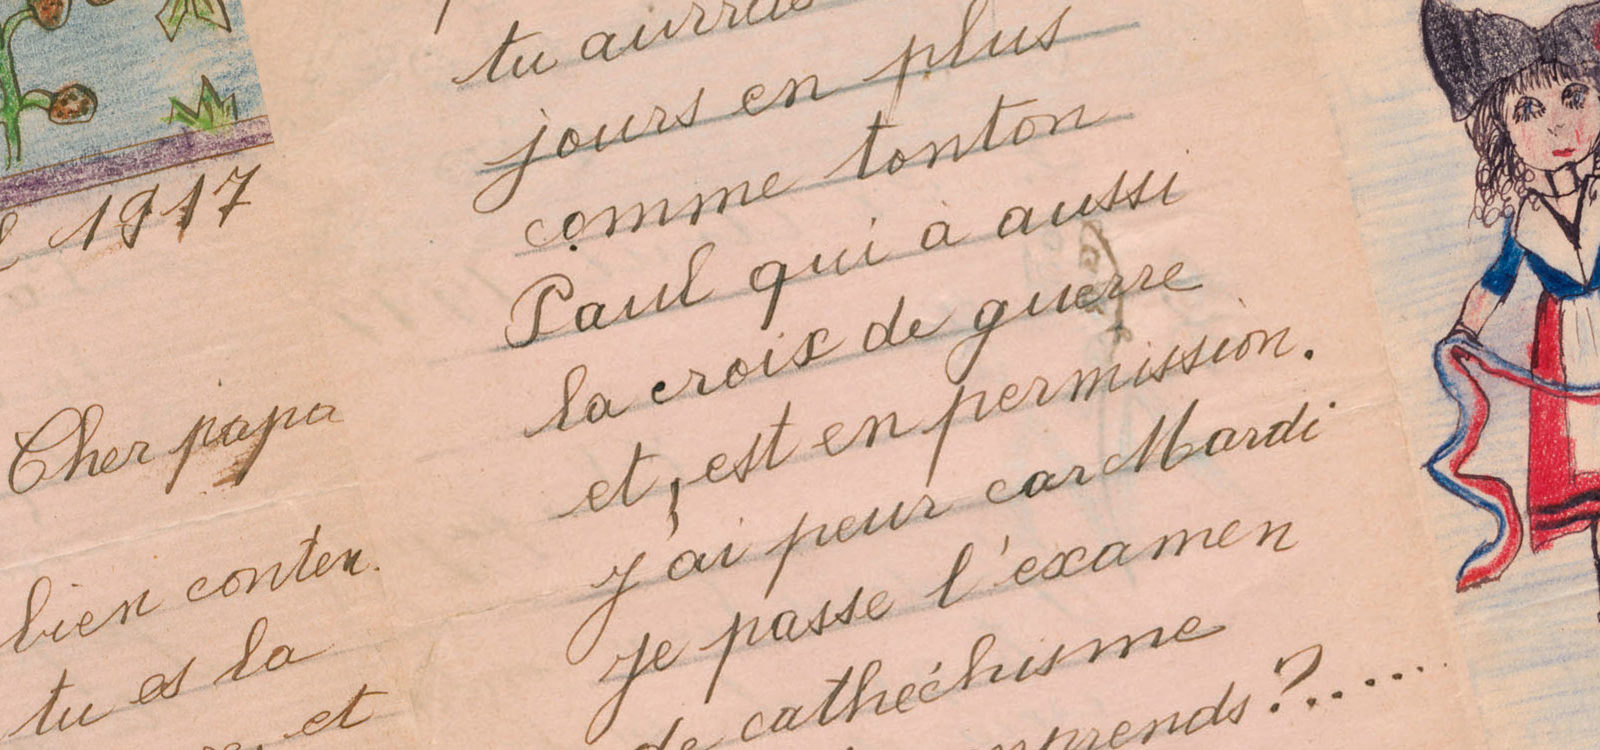 1917
Cher papa
bien conten.
tu as la
et
tu aurras
jours en plus
comme tonton
Paul qui à aussi
la croix de guerre
et, est en permission.
j'ai peur car Mardi
je passe l'examen
de cathéchisme
?.....